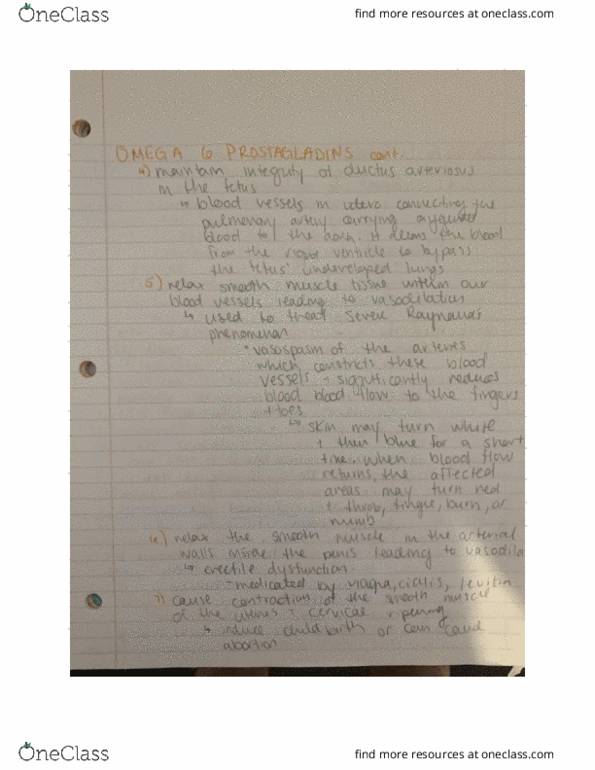 OneClass
find more resources at oneclass.com
OMEGA 6 PROSTAGLADINS cont.
4) maintain integrity of ductus arteriosus
in the fetus
↳ blood vessels in utero connecting the
pulmonary artery carrying
blood to the aorta. It the blood
from the right ventricle to bypass
the fetus' undeveloped lungs
5) relax smooth muscle tissue within our
blood vessels leading to vasodilation
↳ used to treat severe Raynaud's
phenomenon
• vasospasm of the arteries
which constricts these blood
vessels + significantly reduces
blood blood flow to the fingers
+ toes
↳ skin may turn white
+ then blue for a short
time. when blood flow
returns, the affected
areas may turn red
+ throb, tingle, burn, or
numb
relax the smooth muscle in the arterial
walls inside the penis leading to vasodila
↳ erectile dysfunction
medicated by viagra, cialis, levitra
7) cause contraction of the smooth muscle
of the uterus + cervical ripening
↳ induce childbirth or can cause
abortion
OneClass
find more resources at oneclass.com